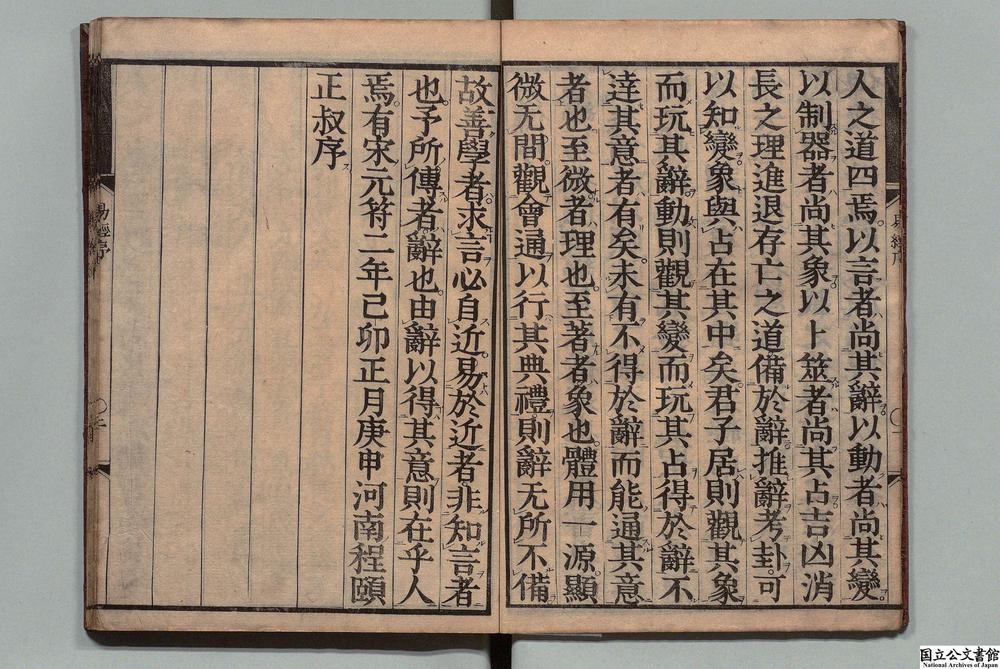 人之道四焉以言者尚其辭以動者尚其變
以制器者尚其象以卜筮者尚其占吉凶消
長之理進退存亡之道備於辭推辭考卦可
以知變象與占在其中矣君子居則觀其象
而玩其辭動則觀其變而玩其占得於辭不
達其意者有矣未有不得於辭而能通其意
者也至微者理也至著者象也體用一源顯
微无間觀會通以行其典禮則辭无所不備
故善學者求言必自近易於近者非知言者
也予所傳者辭也由辭以得其意則在乎人
焉有宋元符二年己卯正月庚申河南程頤
正叔序
易經序
国立公文書館
National Archives of Japan